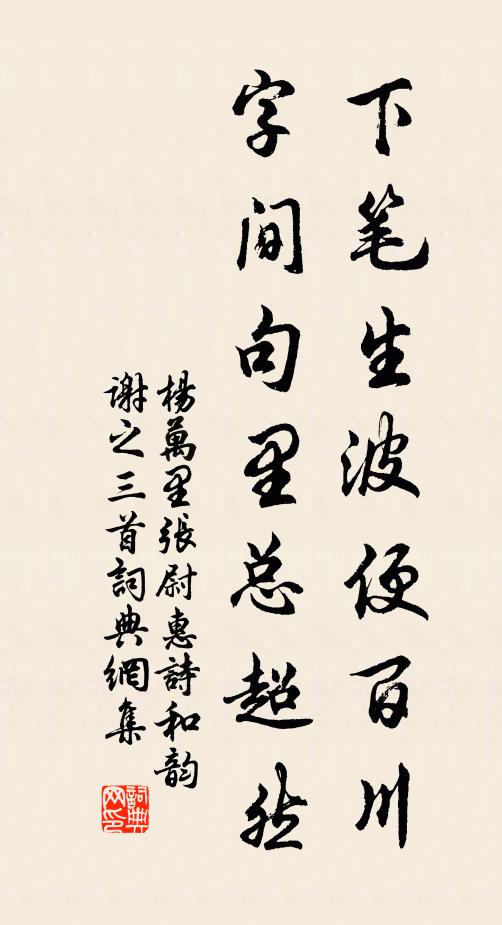 下笔生波便百川
字间句里总超然
杨萬里張尉惠詩和韵
谢之三首詞典網集
詞典
网印